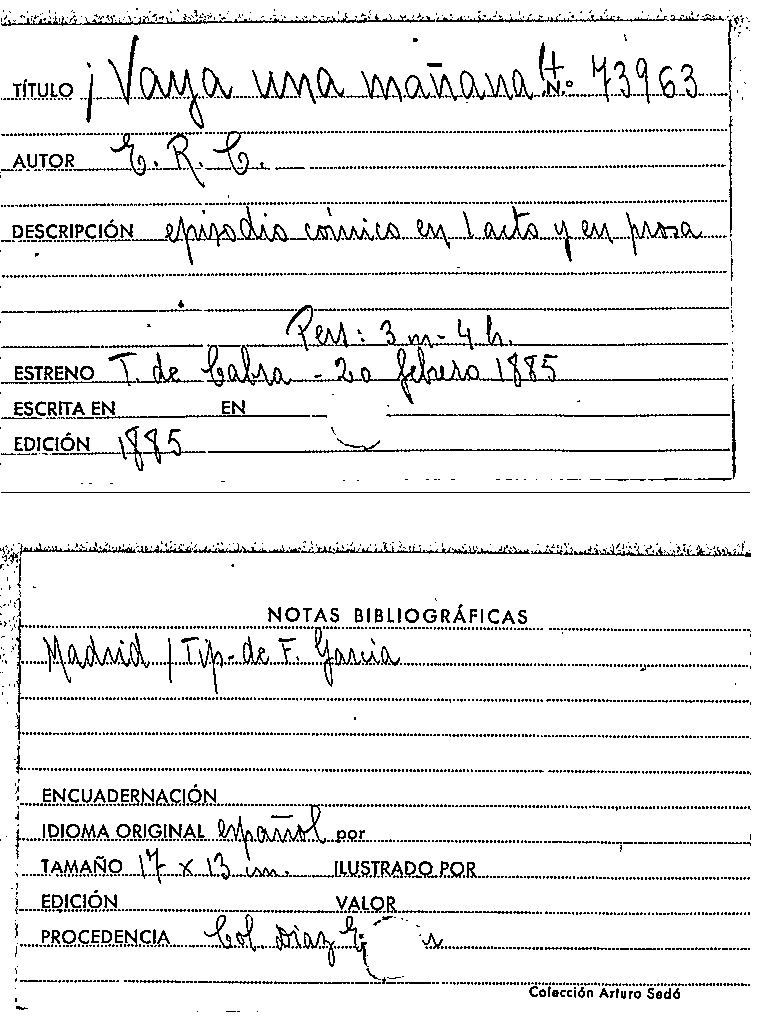 TÍTULO ¡Vaya una mañana! N.º 73963
AUTOR E. R. C.
DESCRIPCIÓN episodio cómico en 1 acto y en prosa
Pers: 3 m - 4 h.
ESTRENO T. de Cabra - 20 febrero 1885
ESCRITA EN EN
EDICIÓN 1885
NOTAS BIBLIOGRÁFICAS
Madrid / Tip. de F. García
ENCUADERNACIÓN
IDIOMA ORIGINAL español por
TAMAÑO 17 x 13 cm. ILUSTRADO POR
EDICIÓN VALOR
PROCEDENCIA Col. Díaz
Colección Arturo Sedó